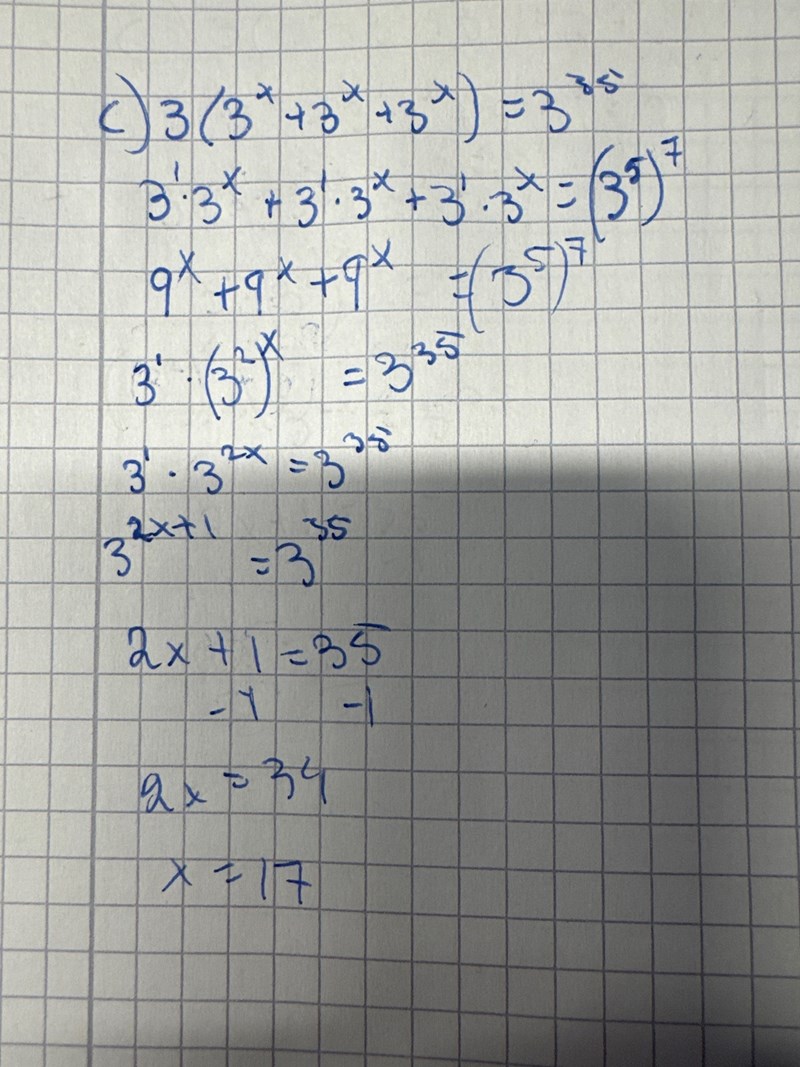 c) 3(3^x + 3^x + 3^x) = 3^35
3^1 · 3^x + 3^1 · 3^x + 3^1 · 3^x = (3^5)^7
9^x + 9^x + 9^x = (3^5)^7
3^1 · (3^2)^x = 3^35
3^1 · 3^2x = 3^35
3^2x+1 = 3^35
2x + 1 = 35
-1 -1
2x = 34
x = 17